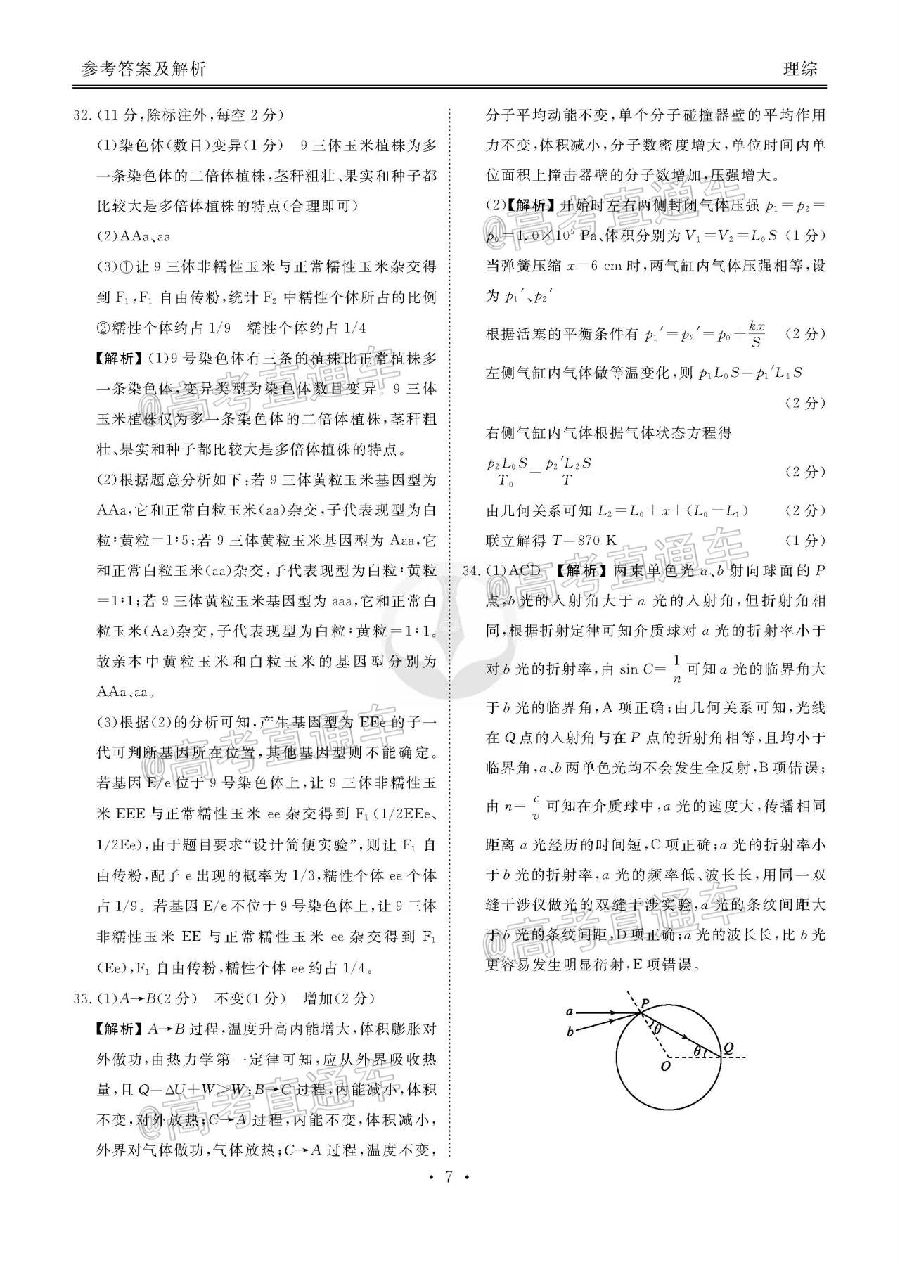 参考答案及解析
理综
32.(11分,除标注外,每空2分)
(1)染色体(数目)变异(1分) 9三体玉米植株为多
一条染色体的二倍体植株,茎秆粗壮、果实和种子都
比较大是多倍体植株的特点(合理即可)
(2)AAa、aa
(3)①让9三体非糯性玉米与正常糯性玉米杂交得
到F₁,F₁自由传粉,统计F₂中糯性个体所占的比例
②糯性个体约占1/9 糯性个体约占1/4
【解析】(1)9号染色体有三条的植株比正常植株多
一条染色体,变异类型为染色体数目变异。9三体
玉米植株仅为多一条染色体的二倍体植株,茎秆粗
壮、果实和种子都比较大是多倍体植株的特点。
(2)根据题意分析如下:若9三体黄粒玉米基因型为
AAa,它和正常白粒玉米(aa)杂交,子代表现型为白
粒∶黄粒=1∶5;若9三体黄粒玉米基因型为Aaa,它
和正常白粒玉米(aa)杂交,子代表现型为白粒∶黄粒
=1∶1;若9三体黄粒玉米基因型为aaa,它和正常白
粒玉米(Aa)杂交,子代表现型为白粒∶黄粒=1∶1。
故亲本中黄粒玉米和白粒玉米的基因型分别为
AAa、aa。
(3)根据(2)的分析可知,产生基因型为EEe的子一
代可判断基因所在位置,其他基因型则不能确定。
若基因E/e位于9号染色体上,让9三体非糯性玉
米EEE与正常糯性玉米ee杂交得到F₁(1/2EEe、
1/2Ee),由于题目要求“设计简便实验”,则让F₁自
由传粉,配子e出现的概率为1/3,糯性个体ee个体
占1/9。若基因E/e不位于9号染色体上,让9三体
非糯性玉米EE与正常糯性玉米ee杂交得到F₁
(Ee),F₁自由传粉,糯性个体ee约占1/4。
33.(1)A→B(2分) 不变(1分) 增加(2分)
【解析】A→B过程,温度升高内能增大,体积膨胀对
外做功,由热力学第一定律可知,应从外界吸收热
量,且Q=ΔU+W>W;B→C过程,内能减小,体积
不变,对外放热;C→A过程,内能不变,体积减小,
外界对气体做功,气体放热;C→A过程,温度不变,
分子平均动能不变,单个分子碰撞器壁的平均作用
力不变,体积减小,分子数密度增大,单位时间内单
位面积上撞击器壁的分子数增加,压强增大。
(2)【解析】开始时左右两侧封闭气体压强p₁=p₂=
p₀=1.0×10⁵ Pa,体积分别为V₁=V₂=L₀S (1分)
当弹簧压缩x=6 cm时,两气缸内气体压强相等,设
为p₁′、p₂′
根据活塞的平衡条件有p₁′=p₂′=p₀-kx/S (2分)
左侧气缸内气体做等温变化,则p₁L₀S=p₁′L₁S
(2分)
右侧气缸内气体根据气体状态方程得
p₂L₀S/T₀=p₂′L₂S/T (2分)
由几何关系可知L₂=L₀+x+(L₀-L₁) (2分)
联立解得T=870 K (1分)
34.(1)ACD 【解析】两束单色光a、b射向球面的P
点,b光的入射角大于a光的入射角,但折射角相
同,根据折射定律可知介质球对a光的折射率小于
对b光的折射率,由sin C=1/n可知a光的临界角大
于b光的临界角,A项正确;由几何关系可知,光线
在Q点的入射角与在P点的折射角相等,且均小于
临界角,a、b两单色光均不会发生全反射,B项错误;
由n=c/v可知在介质球中,a光的速度大,传播相同
距离a光经历的时间短,C项正确;a光的折射率小
于b光的折射率,a光的频率低、波长长,用同一双
缝干涉仪做光的双缝干涉实验,a光的条纹间距大
于b光的条纹间距,D项正确;a光的波长长,比b光
更容易发生明显衍射,E项错误。
a
b
P
θ
θ
Q
O
• 7 •
@高考直通车
@高考直通车
@高考直通车
@高考直通车
@高考直通车
@高考直通车